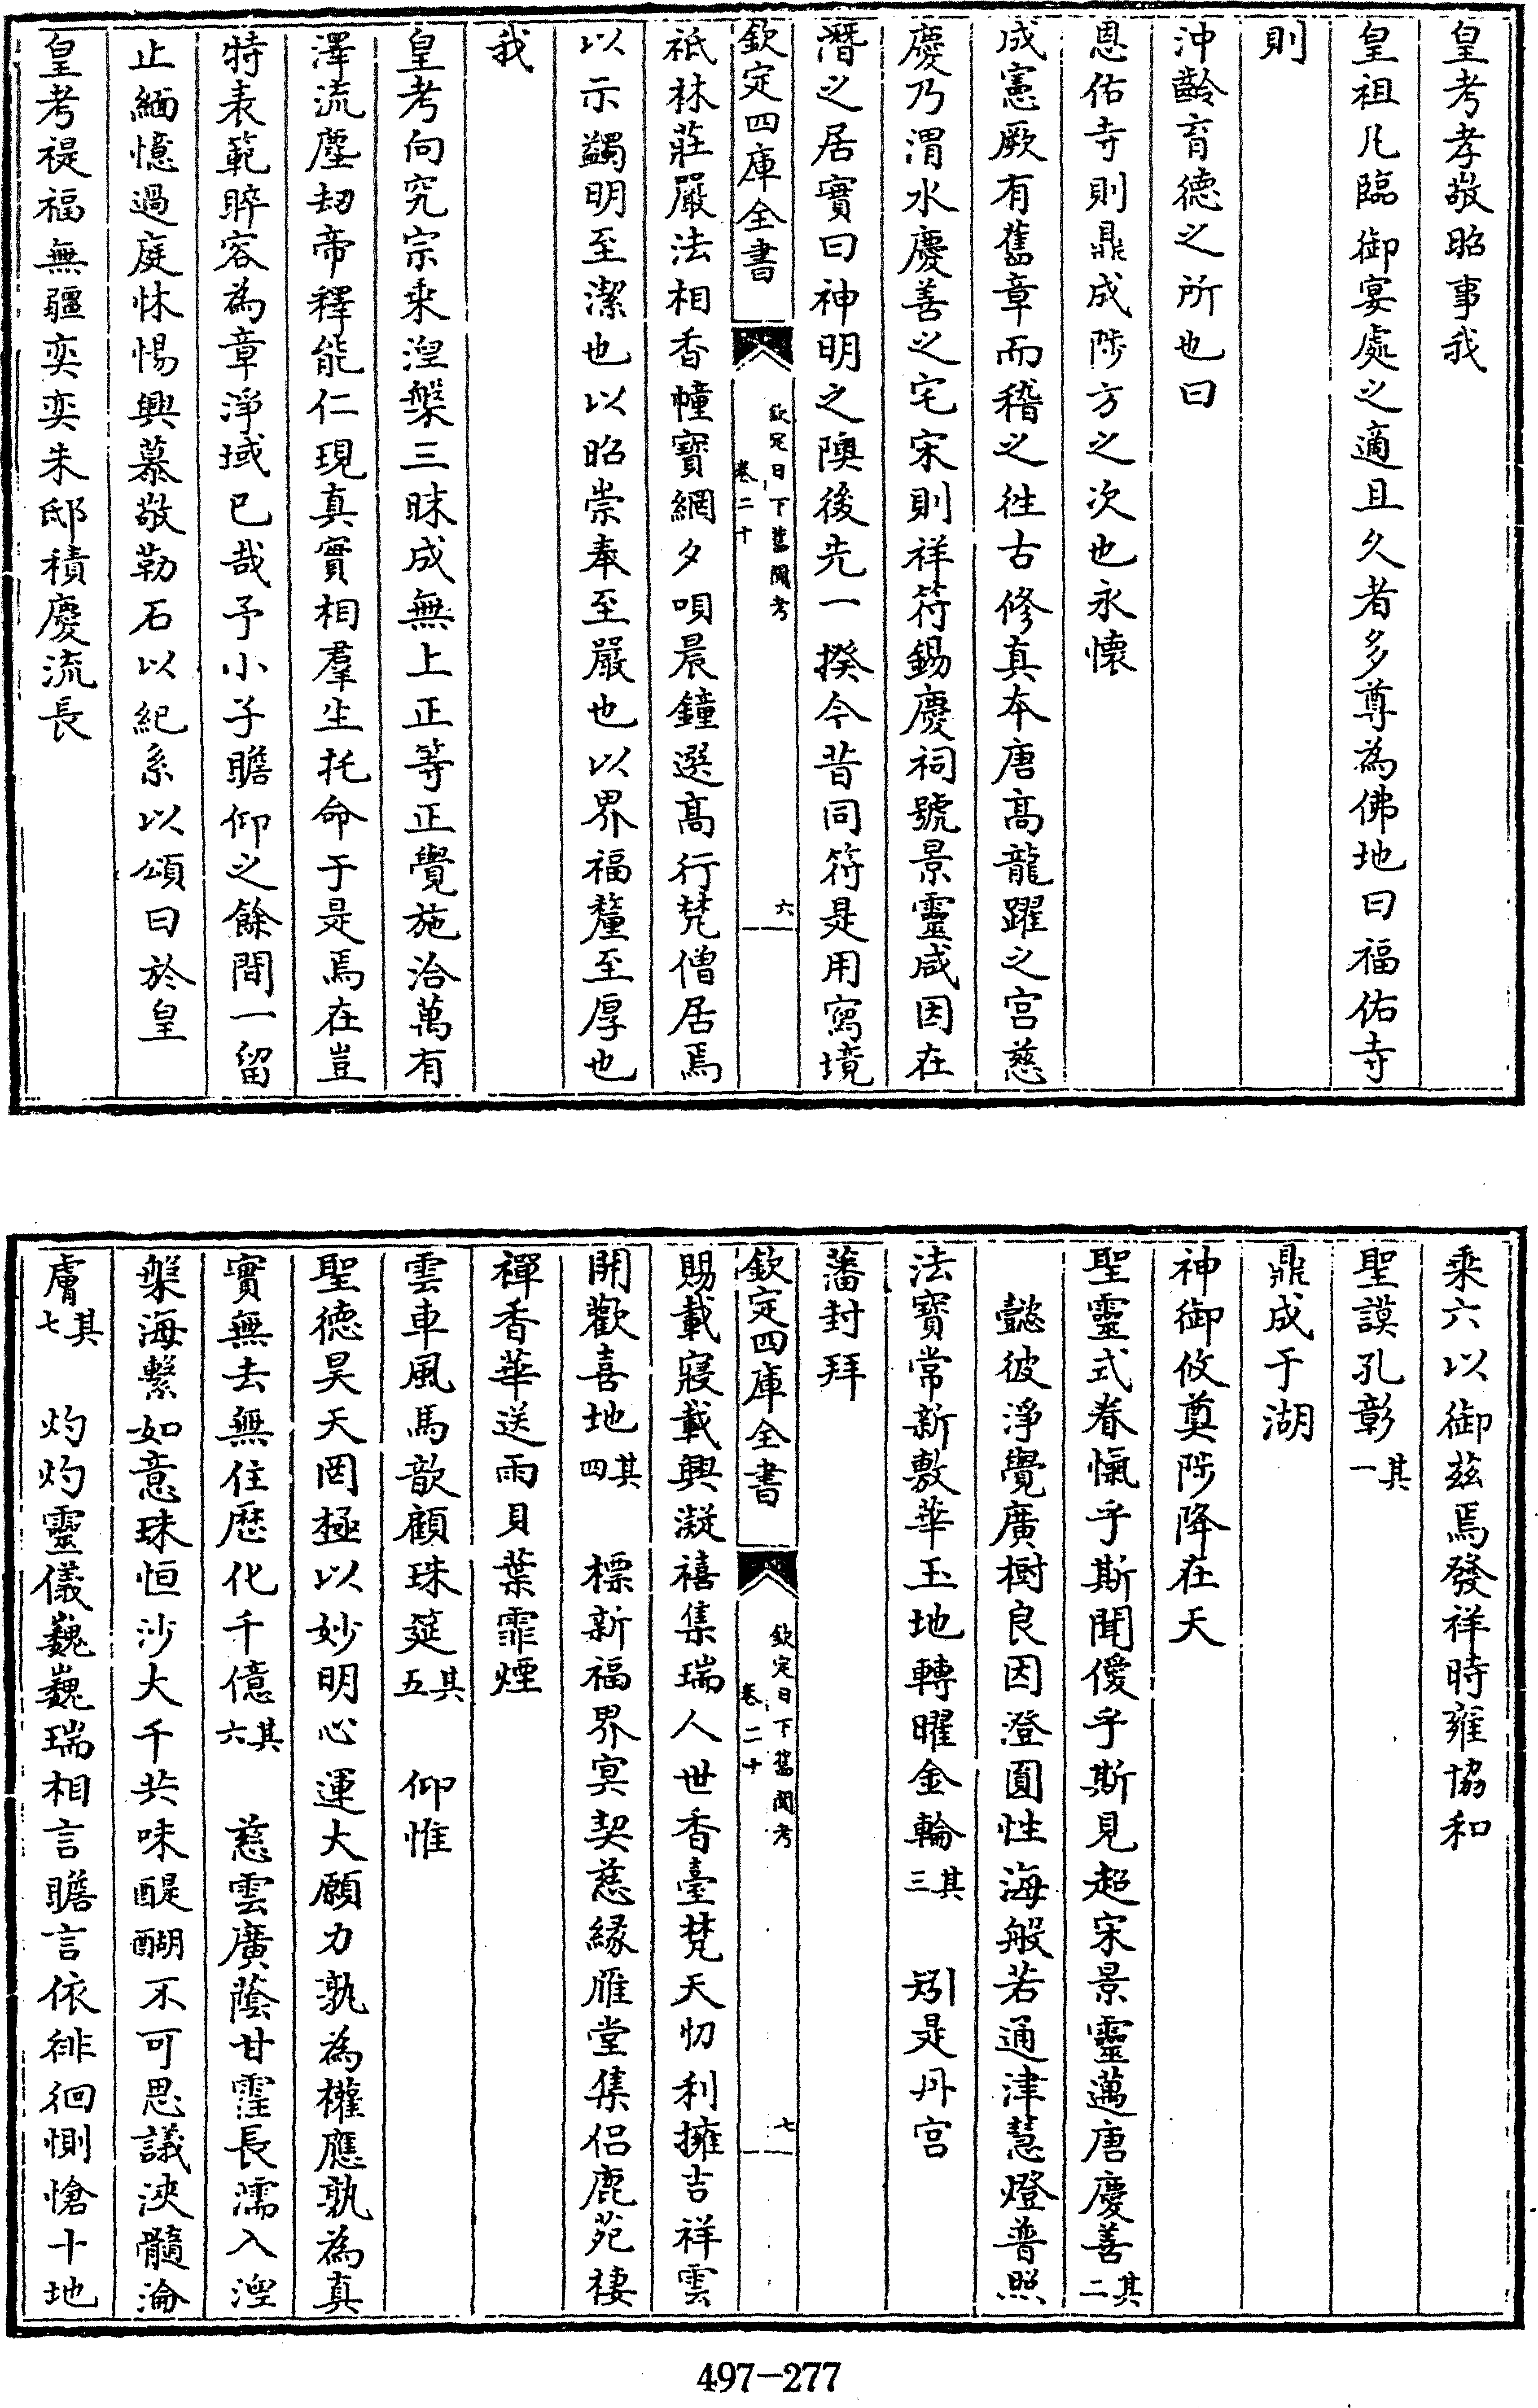 皇考孝敬昭事我
皇祖凡臨御宴處之適且久者多尊為佛地曰福佑寺
則
沖齡育德之所也曰
恩佑寺則鼎成陟方之次也永懷
成憲厥有舊章而稽之徃古修真本唐高龍躍之宫慈
慶乃渭水慶善之宅宋則祥符錫慶祠號景靈咸因在
潛之居實曰神明之隩後先一揆今昔同符是用寫境
欽定四庫全書
欽定日下舊聞考
卷二十
六
祇林莊嚴法相香幢寶網夕唄晨鐘選高行梵僧居焉
以示蠲明至潔也以昭崇奉至嚴也以界福釐至厚也
我
皇考向究宗乘湼槃三昧成無上正等正覺施洽萬有
澤流塵刼帝釋能仁現真實相羣生托命于是焉在豈
特表範睟容為章淨域已哉予小子瞻仰之餘間一留
止緬憶過庭怵惕興慕敬勒石以紀系以頌曰於皇
皇考禔福無疆奕奕朱邸積慶流長
乘六以御兹焉發祥時雍協和
聖謨孔彰其一
鼎成于湖
神御攸奠陟降在天
聖靈式眷愾乎斯聞僾乎斯見超宋景靈邁唐慶善其二
懿彼淨覺廣樹良因澄圓性海般若通津慧燈普照
法寶常新敷華玉地轉曜金輪其三 矧是丹宫
藩封拜
欽定四庫全書
欽定日下舊聞考
卷二十
七
賜載寢載興凝禧集瑞人世香臺梵天忉利擁吉祥雲
開歡喜地其四 標新福界冥契慈緣雁堂集侣鹿苑棲
禪香華送雨貝葉霏煙
雲車風馬歆顧珠筵其五 仰惟
聖德昊天罔極以妙明心運大願力孰為權應孰為真
實無去無住歴化千億其六 慈雲廣蔭甘霔長濡入湼
槃海繫如意珠恒沙大千共味醍醐不可思議浹髓淪
膚其七 灼灼靈儀巍巍瑞相言瞻言依徘徊惻愴十地
497-277